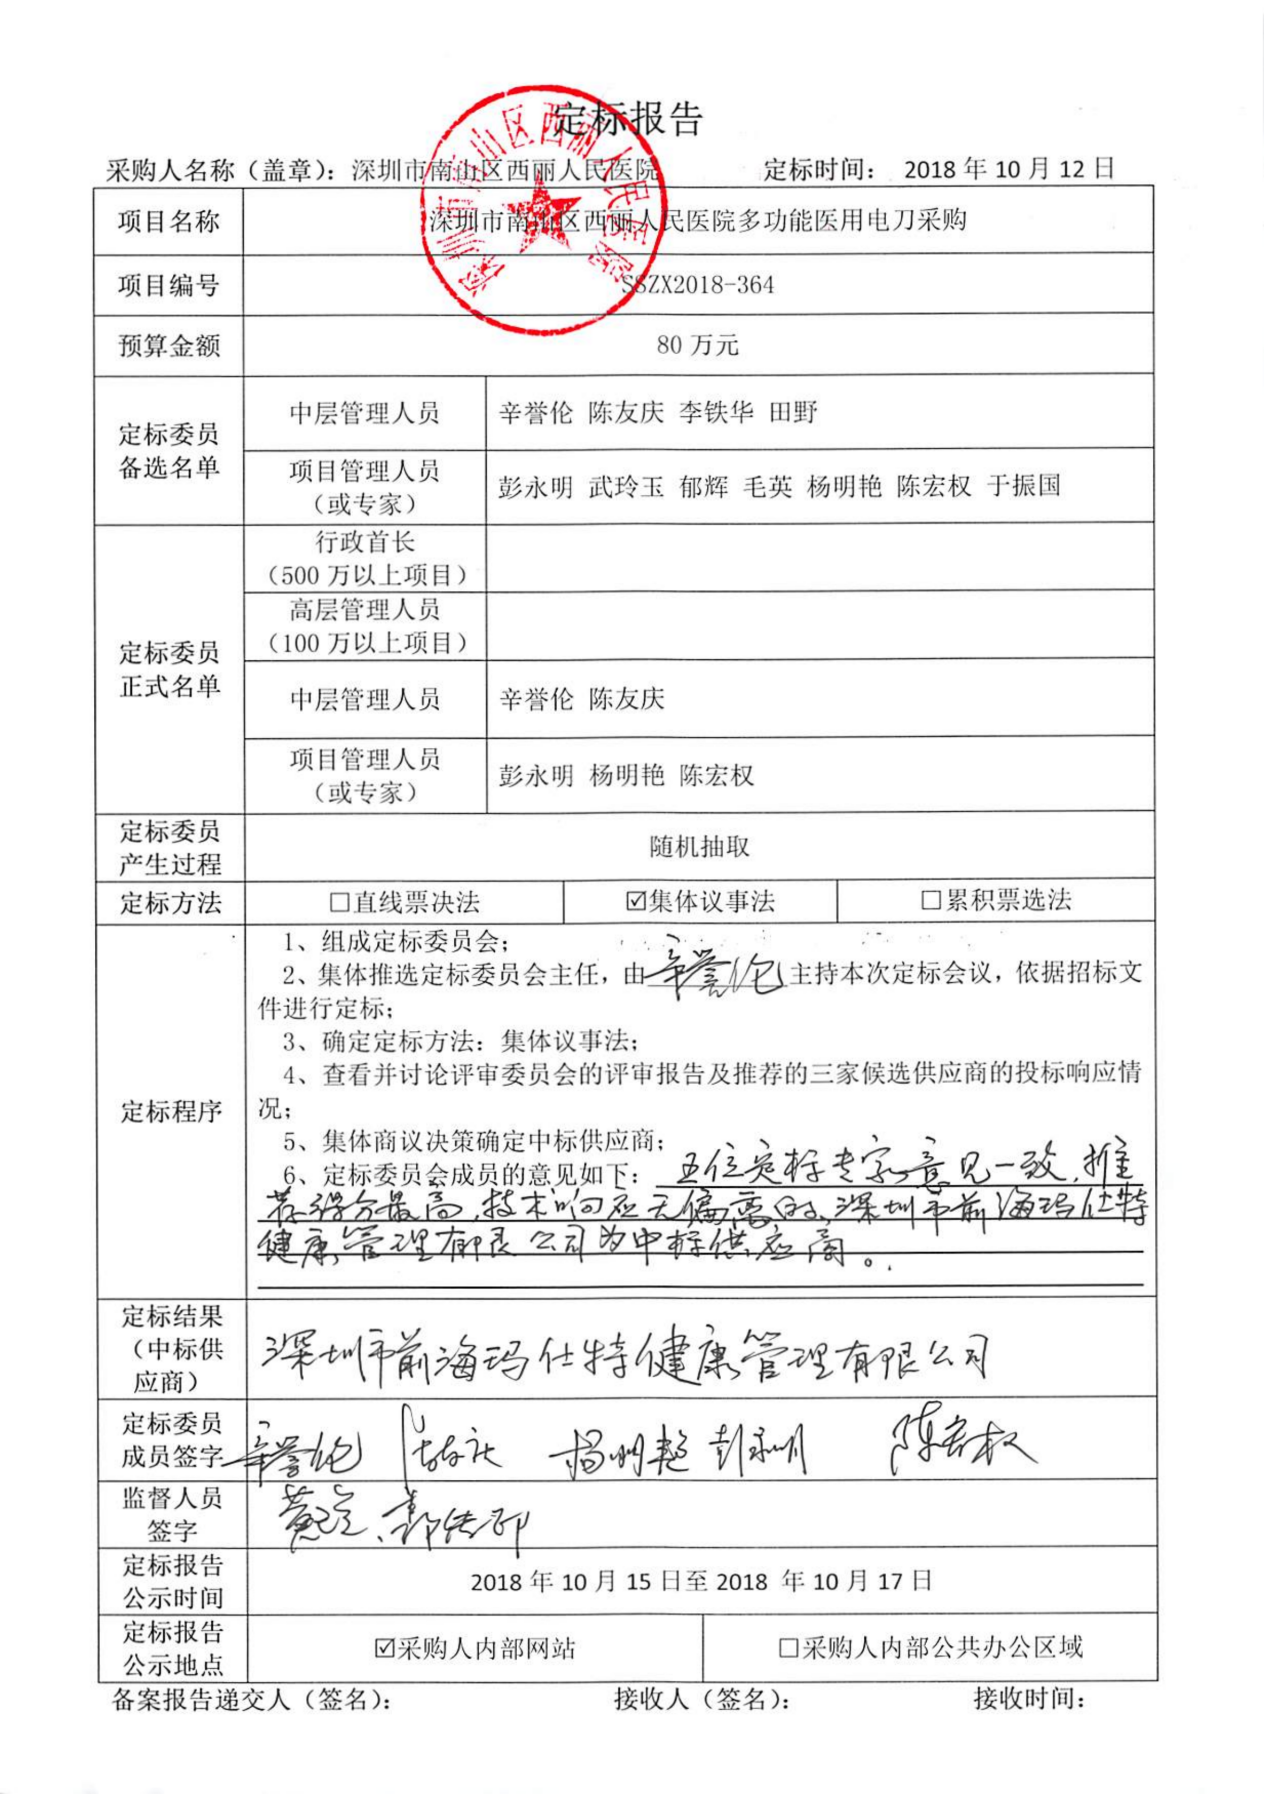 定标报告
采购人名称（盖章）：深圳市南山区西丽人民医院 定标时间： 2018 年 10 月 12 日
深圳市南山区西丽人民医院
项目名称 深圳市南山区西丽人民医院多功能医用电刀采购
项目编号 SSZX2018-364
预算金额 80 万元
定标委员
备选名单
中层管理人员 辛誉伦 陈友庆 李铁华 田野
项目管理人员
（或专家）
彭永明 武玲玉 郁辉 毛英 杨明艳 陈宏权 于振国
定标委员
正式名单
行政首长
（500 万以上项目）
高层管理人员
（100 万以上项目）
中层管理人员 辛誉伦 陈友庆
项目管理人员
（或专家）
彭永明 杨明艳 陈宏权
定标委员
产生过程
随机抽取
定标方法 □直线票决法 ☑集体议事法 □累积票选法
定标程序
1、组成定标委员会；
2、集体推选定标委员会主任，由辛誉伦主持本次定标会议，依据招标文
件进行定标；
3、确定定标方法：集体议事法；
4、查看并讨论评审委员会的评审报告及推荐的三家候选供应商的投标响应情
况；
5、集体商议决策确定中标供应商；
6、定标委员会成员的意见如下：五位定标专家意见一致，推
荐得分最高，技术响应无偏离的深圳市前海玛仕特
健康管理有限公司为中标供应商。
定标结果
（中标供
应商）
深圳市前海玛仕特健康管理有限公司
定标委员
成员签字
辛誉伦 陈友庆 杨明艳 彭永明 陈宏权
监督人员
签字
定标报告
公示时间
2018 年 10 月 15 日至 2018 年 10 月 17 日
定标报告
公示地点
☑采购人内部网站 □采购人内部公共办公区域
备案报告递交人（签名）： 接收人（签名）： 接收时间：